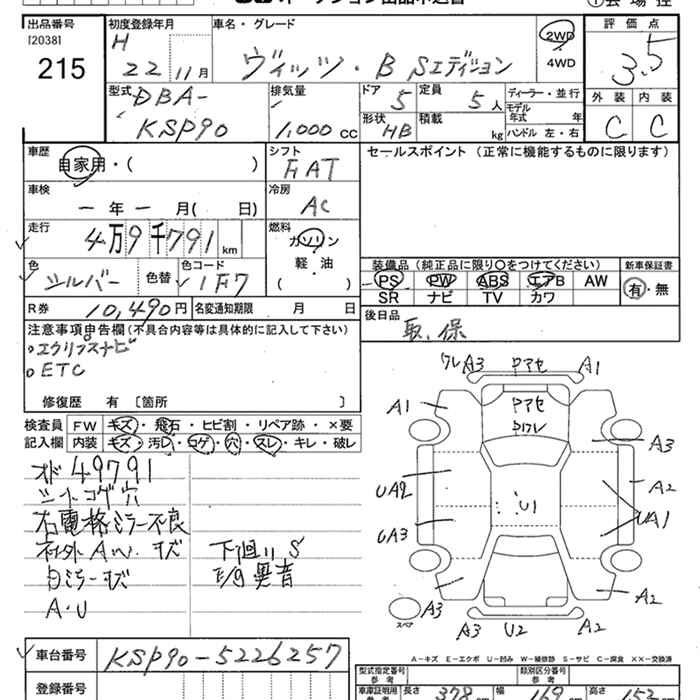 出品番号
[2038]
215
初度登録年月
H
22 11月
車名・グレード
ヴィッツ・B Sエディション
2WD
4WD
評価点
3.5
外装 内装
C C
型式
DBA-
KSP90
排気量
1,000 cc
ドア
5
定員
5人
形状
HB
積載
kg
ディーラー・並行
モデル年式 年
ハンドル 左・右
車歴
自家用・( )
シフト
FAT
セールスポイント (正常に機能するものに限ります)
車検
ー年ー月( 日)
冷房
AC
走行
4万9千791km
燃料
ガソリン
軽・油
( )
色
シルバー
色替
色コード
1F7
装備品 (純正品に限り○をつけてください)
PS PW ABS エアB AW
SR ナビ TV カワ
新車保証書
有・無
R券
10,490円
名変通知期限 月 日
後日品
取.保
注意事項申告欄(不具合内容等は具体的に記入して下さい)
・エクリプスナビ
・ETC
修復歴 有 [箇所 ]
検査員記入欄
FW キズ・飛石・ヒビ割・リペア跡・×要
内装 キズ・汚レ・コゲ・穴・スレ・キレ・破レ
オド 49791
シートコゲ穴
右電格ミラー不良
社外Aw.キズ
下廻りS
Rミラーキズ
E/g異音
A・U
ワレA3 Pアセ A1
A1 Pアセ
PワレA3
UA2 U1 A2
UA3 UA1
スペア
A3 A2
A3 U2 A2
車台番号
KSP90-5226257
A-キズ E-エクボ U-凹み W-補修跡 S-サビ C-腐食 XX-交換済
登録番号
型式指定番号
参考
類別区分番号
参考
車庫証明用
参考
長さ 378 幅 169 高さ 152